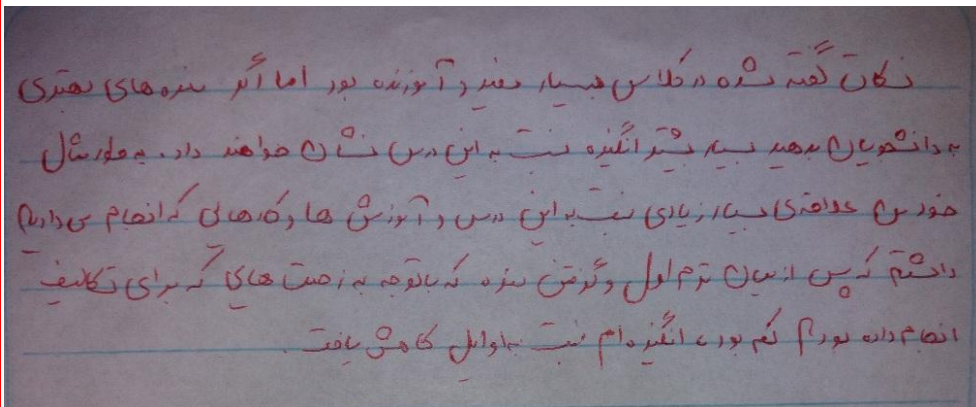 نکات گفته شده در کلاس بسیار مفید و آموزنده بود اما اگر نمره های بهتری
به دانشجویان بدهید بسیار بیشتر انگیزه نسبت به این درس نشان خواهند داد. به طور مثال
خود من علاقه ی بسیار زیادی نسبت به این درس و آموزش ها و کارهایی که انجام می دادیم
داشتم که پس از میان ترم اول و گرفتن نمره که باتوجه به زحمت هایی که برای تکالیف
انجام داده بودم کم بود، انگیزه ام نسبت به اوایل کاهش یافت.